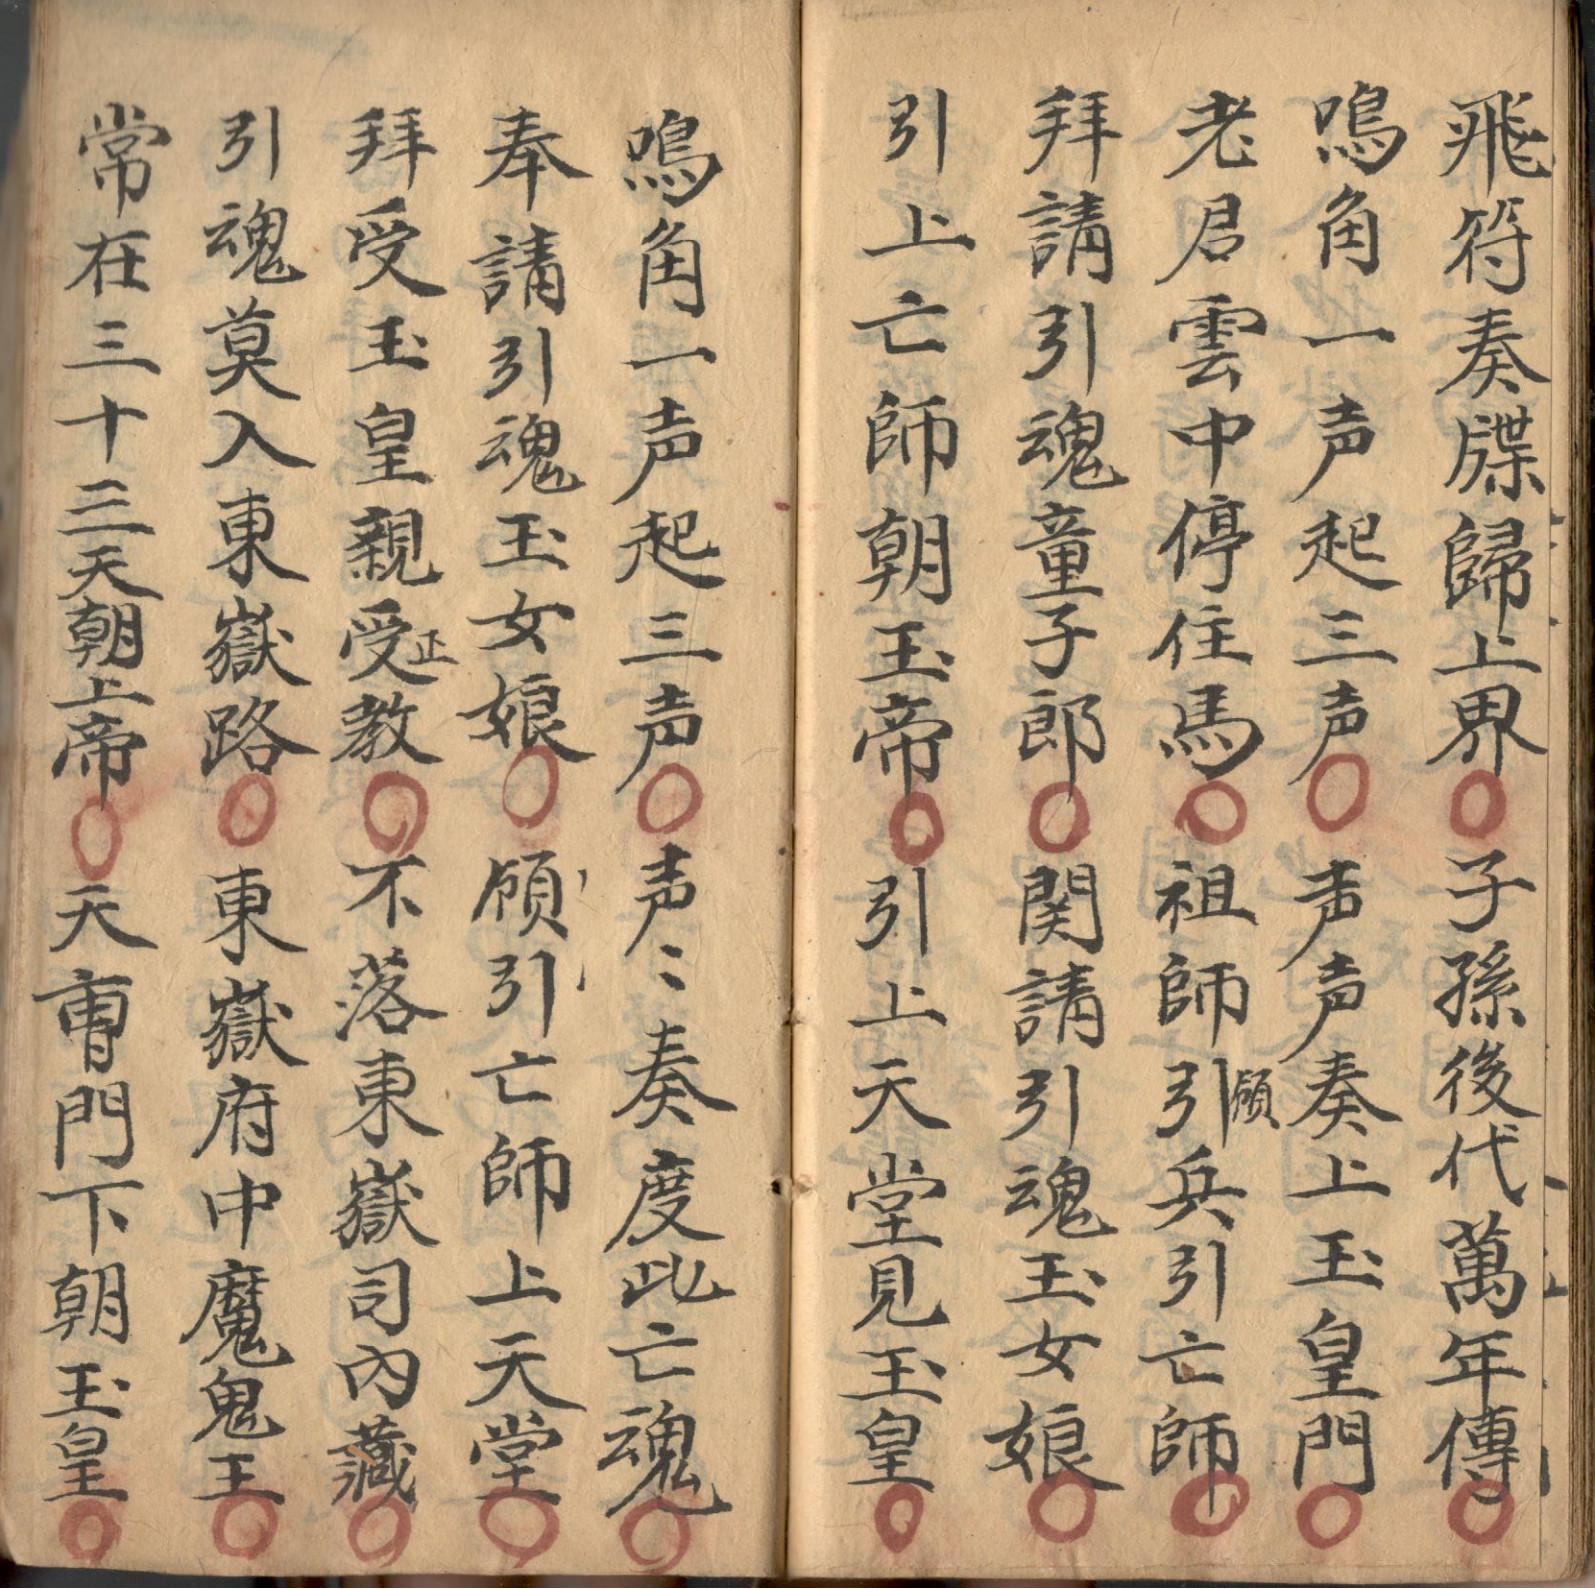 飛符奏牒歸上界〇子孫後代萬年傳〇
鳴角一声起三声〇声声奏上玉皇門〇
老君雲中停住馬〇祖師引願兵引亡師〇
拜請引魂童子郎〇関請引魂玉女娘〇
引上亡師朝玉帝〇引上天堂見玉皇〇
鳴角一声起三声〇声〻奏度此亡魂〇
奉請引魂玉女娘〇願引亡師上天堂〇
拜受玉皇親受正教〇不落東嶽司內藏〇
引魂莫入東嶽路〇東嶽府中魔鬼王〇
常在三十三天朝上帝〇天曹門下朝玉皇〇